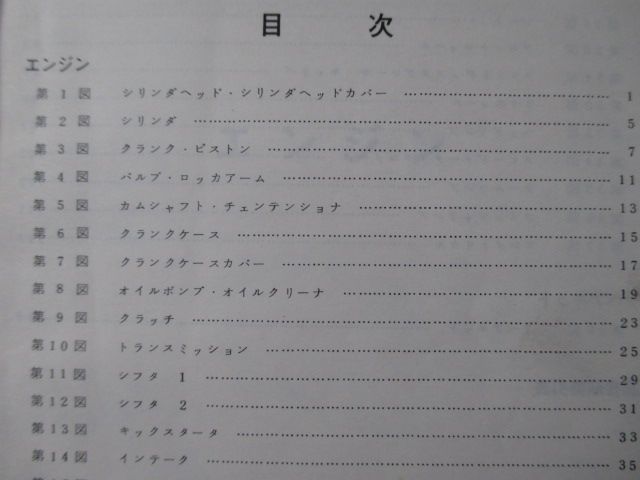 目 次
エンジン
第 1 図 シリンダヘッド・シリンダヘッドカバー ………… 1
第 2 図 シリンダ ………… 5
第 3 図 クランク・ピストン ………… 7
第 4 図 バルブ・ロッカアーム ………… 11
第 5 図 カムシャフト・チェンテンショナ ………… 13
第 6 図 クランクケース ………… 15
第 7 図 クランクケースカバー ………… 17
第 8 図 オイルポンプ・オイルクリーナ ………… 19
第 9 図 クラッチ ………… 23
第10図 トランスミッション ………… 25
第11図 シフタ 1 ………… 29
第12図 シフタ 2 ………… 31
第13図 キックスタータ ………… 33
第14図 インテーク ………… 35